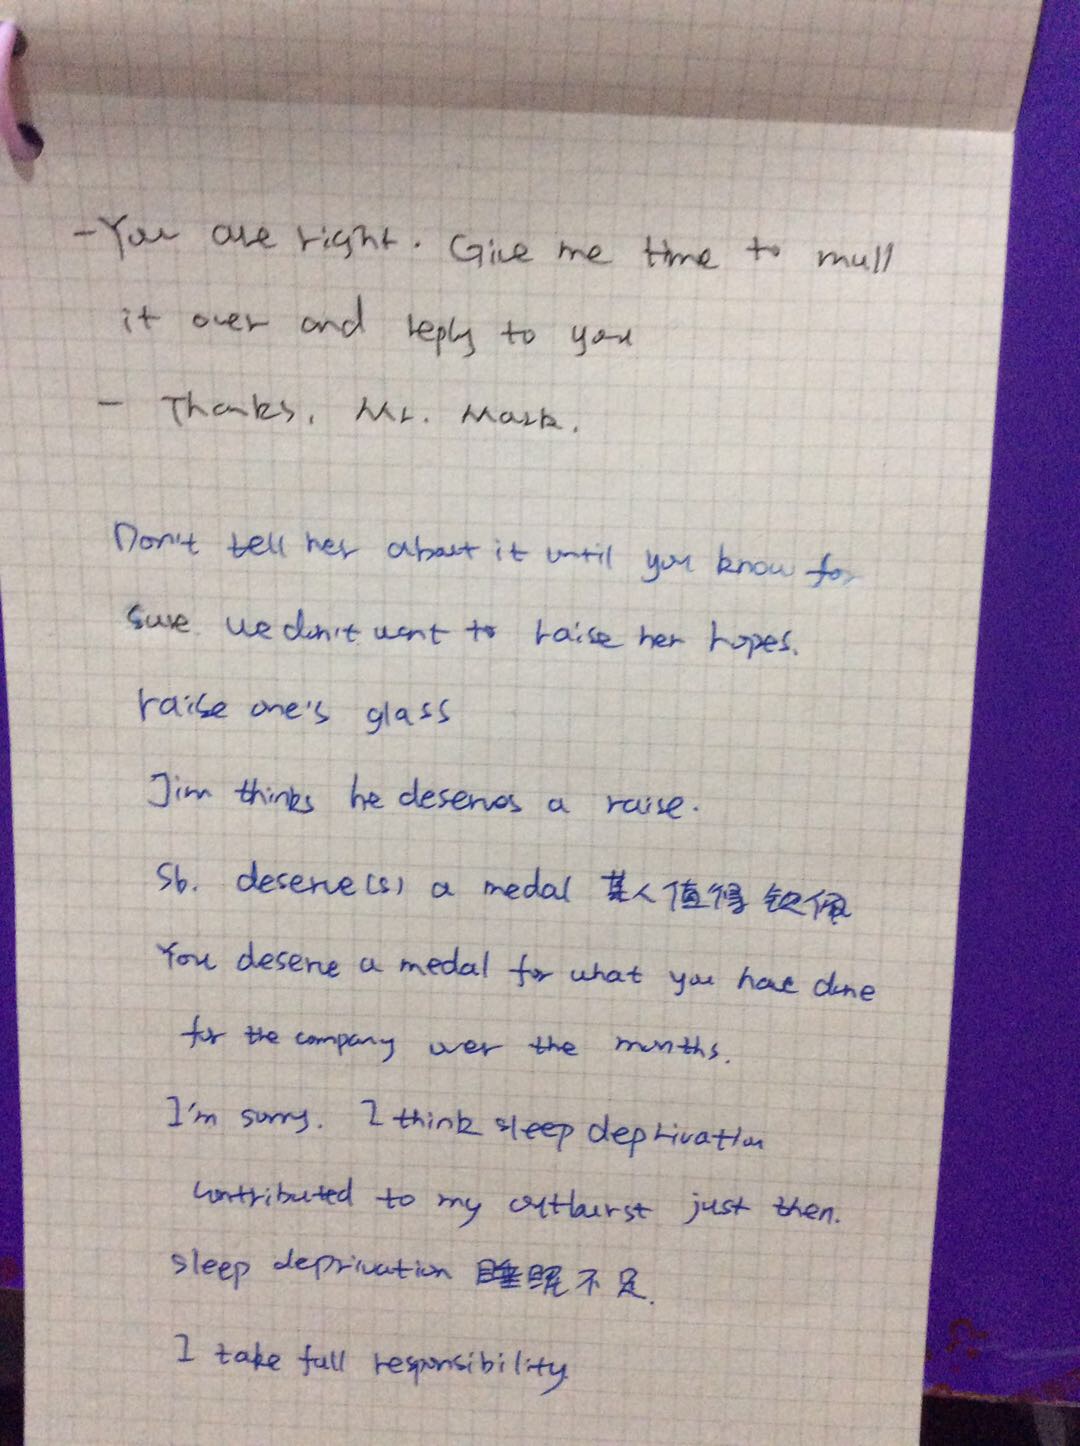 -You are right. Give me time to mull
it over and reply to you
- Thanks, Mr. Mark.
Don't tell her about it until you know for
sure. we don't want to raise her hopes.
raise one's glass
Jim thinks he deserves a raise.
Sb. deserve(s) a medal 某人值得钦佩
You deserve a medal for what you have done
for the company over the months.
I'm sorry. I think sleep deprivation
contributed to my outburst just then.
sleep deprivation 睡眠不足.
I take full responsibility